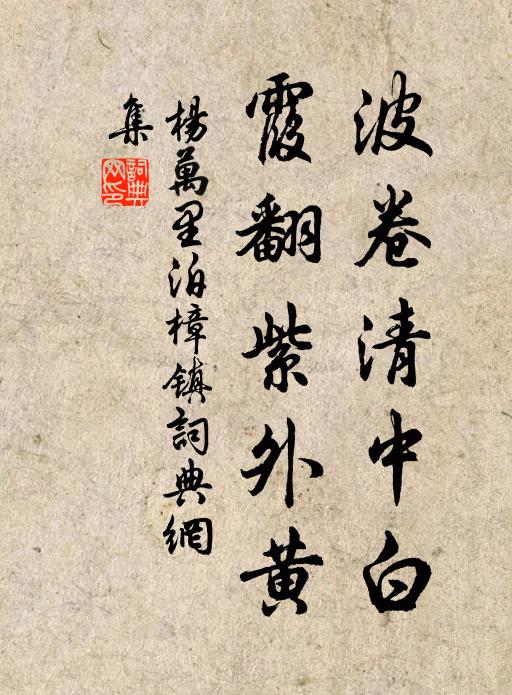 波卷清中白
霞翻紫外黄
楊萬里泊樟鎮詞典網
集
詞典
网印